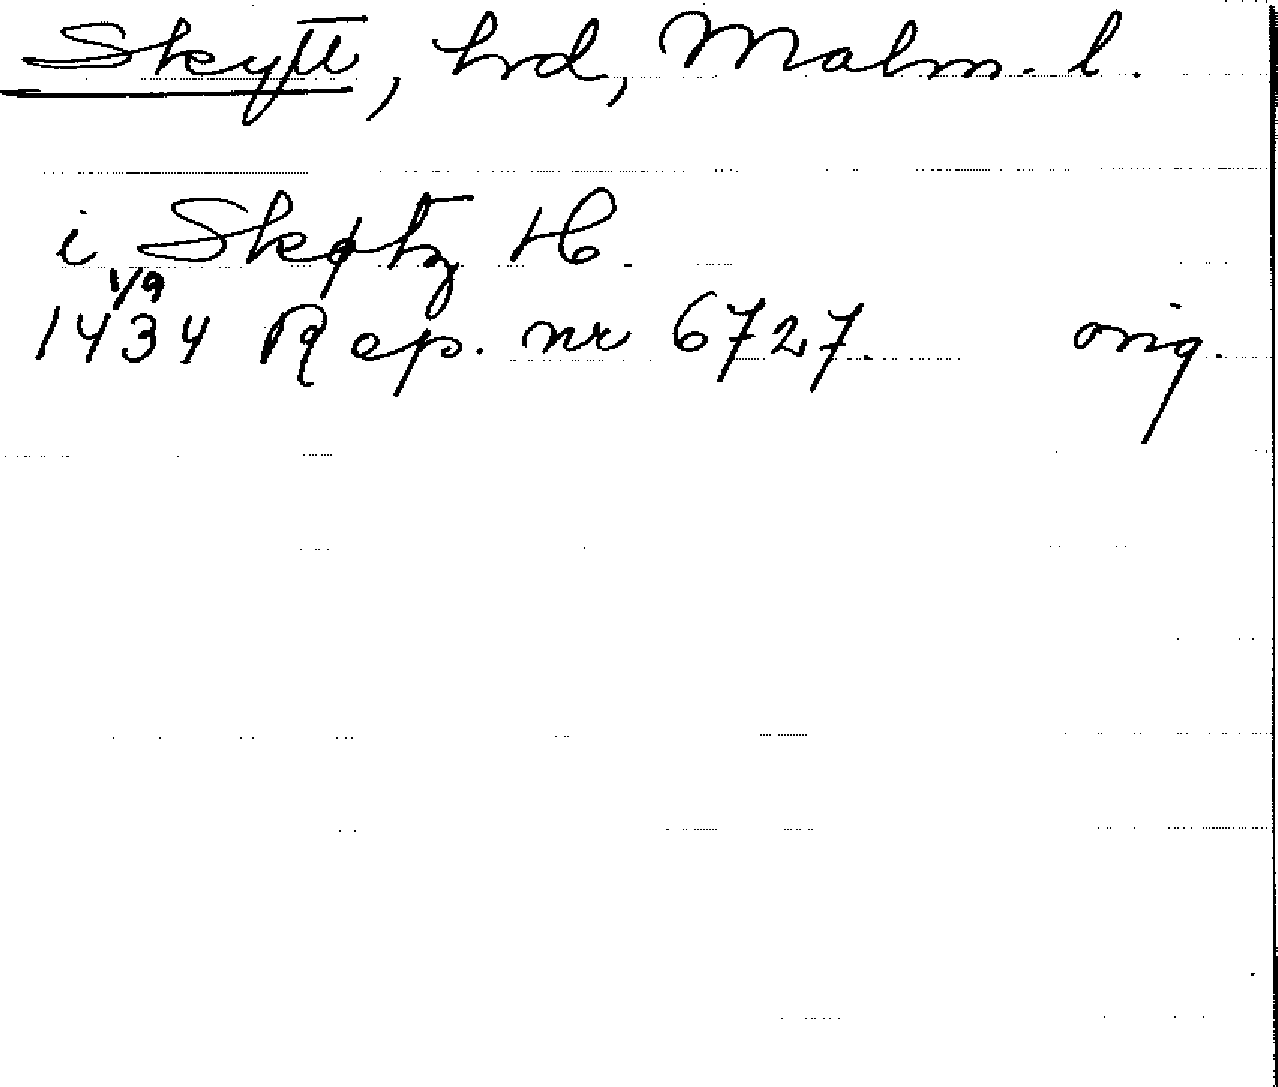 Skytt, hrd, Malm. l.
i Skøtz H.
1/9
1434 Rep. nr 6727. orig.